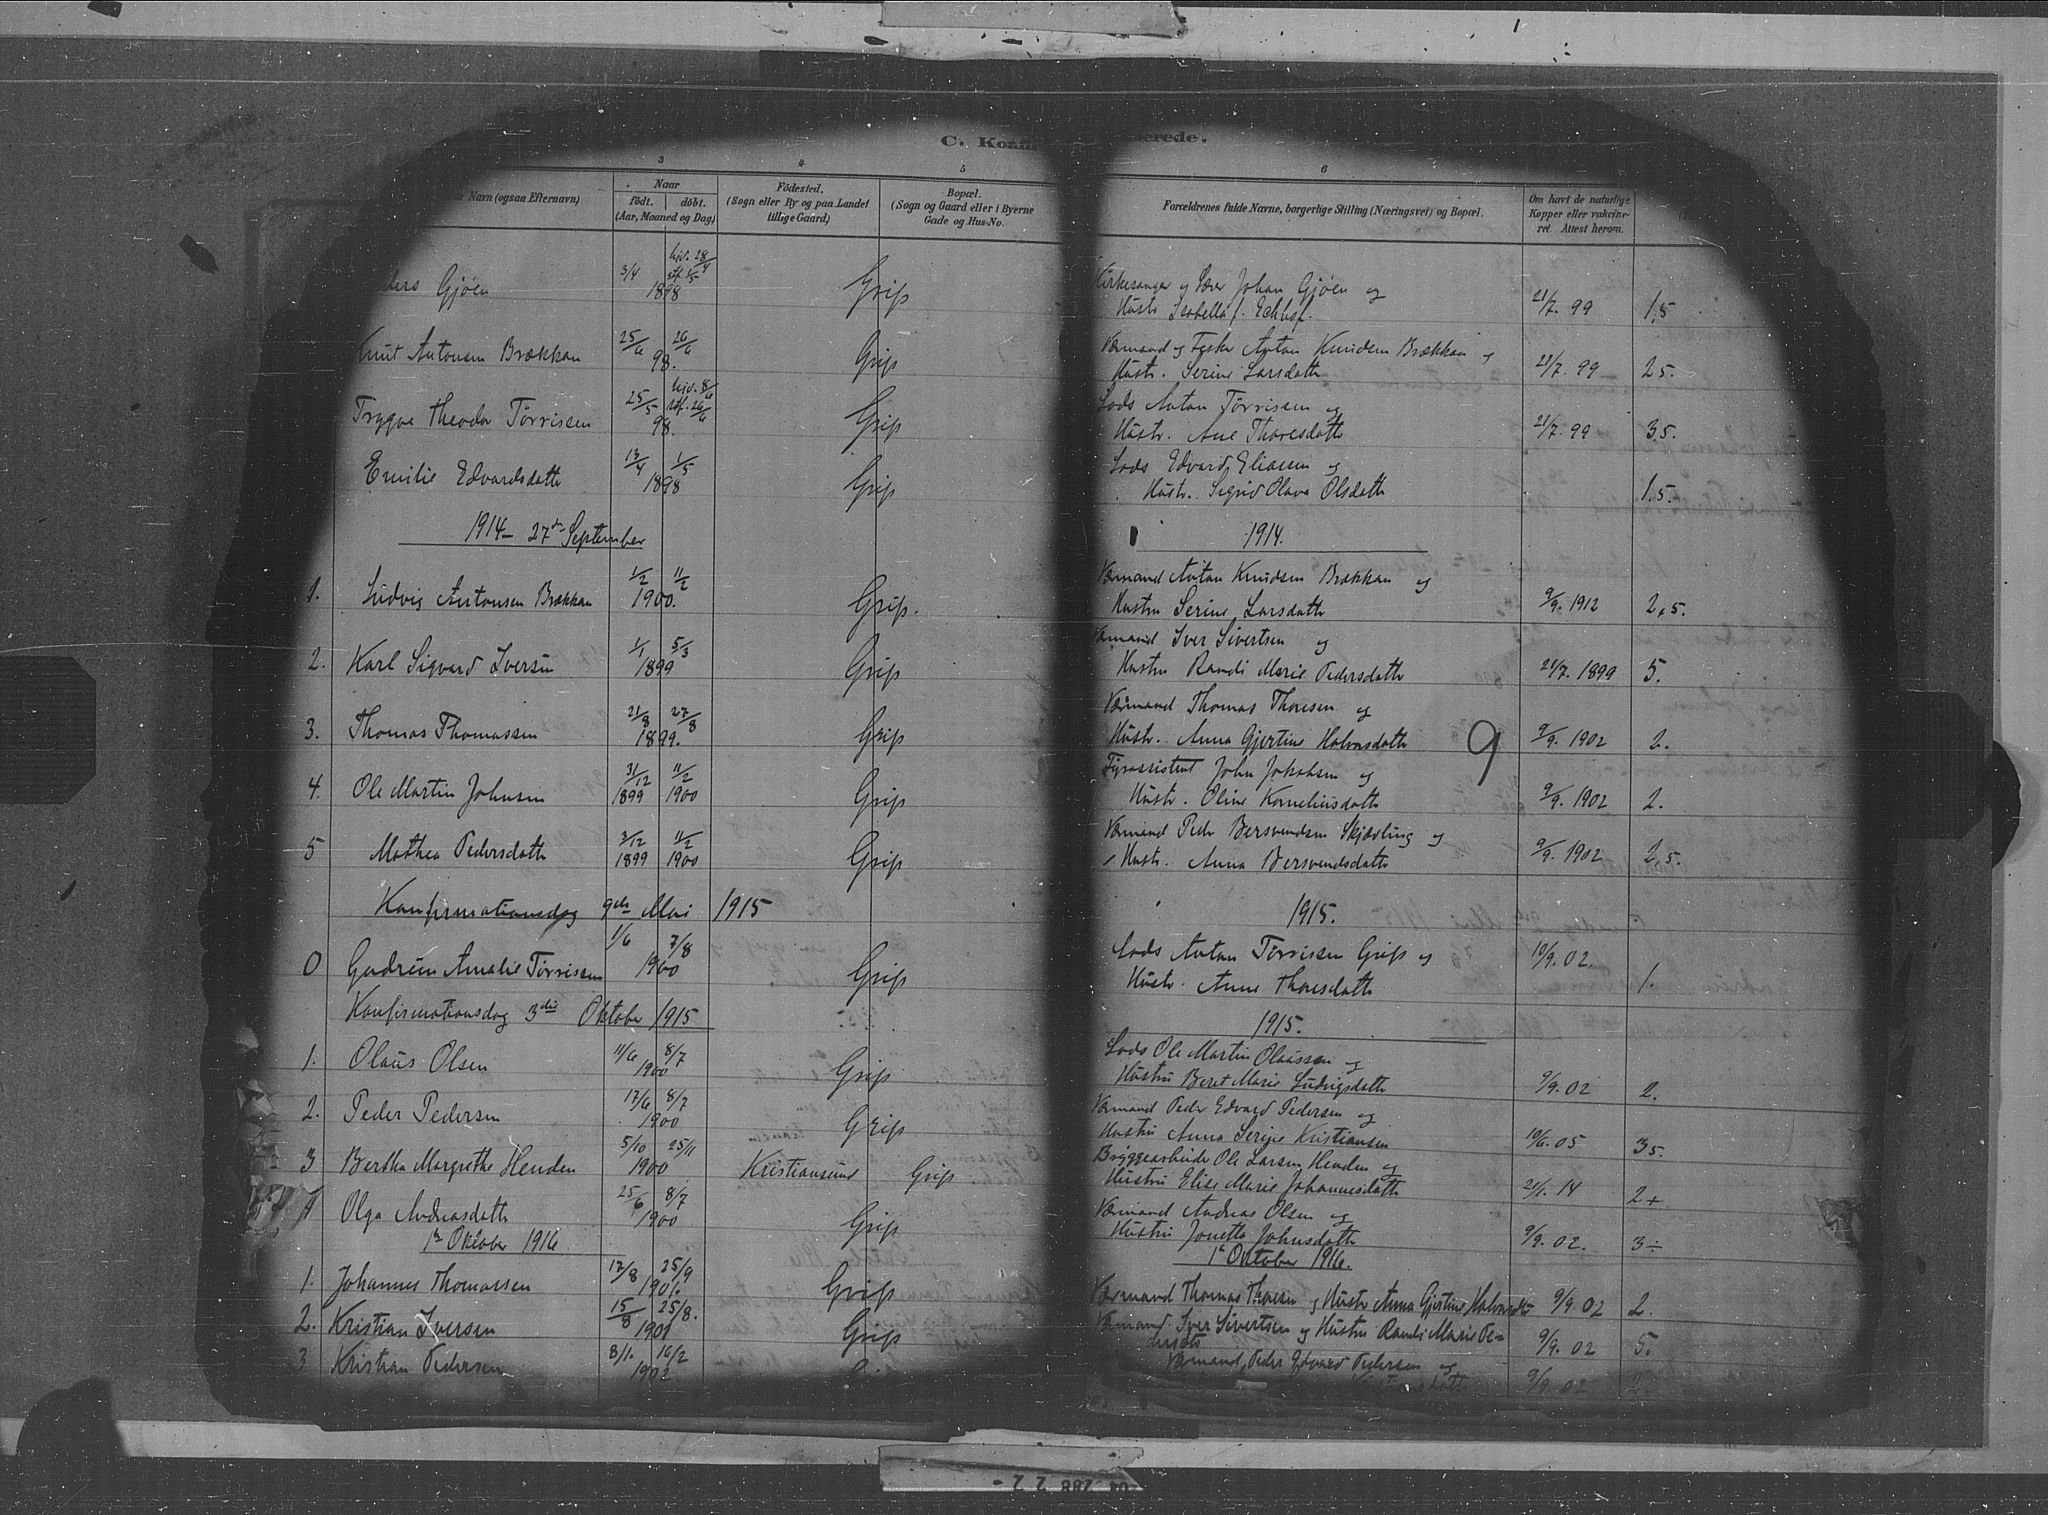 C. Konfi
erede.
3
4
5
6
Navn (ogsaa Efternavn)
Naar
født. døbt.
(Aar, Maaned og Dag)
Fødested.
(Sogn eller By og paa Landet
tillige Gaard)
Bopæl.
(Sogn og Gaard eller i Byerne
Gade og Hus-No.
Forældrenes fulde Navne, borgerlige Stilling (Næringsvei) og Bopæl.
Om havt de naturlige
Kopper eller vakcine-
ret. Attest herom.
ders Gjøen 3/4 hjv. 28/4 stf. 1898 Grip
Kirkesanger og Lærer Johan Gjøen og
Hustr Isabella f. 21/7. 99 1,5
Knut Antonsen Brækkan 25/6 26/6 98. Grip
Værmand og Fisker Anton Knudsen Brækkan og
Hustr. Serine Larsdatter 21/7. 99 2.5.
Trygve Theodor Tørrissen 25/5 hjv. 8/6 stf. 26/6 98. Grip
Lods Anton Tørrissen og
Hustr. Ane Thoresdatter 21/7. 99 3,5.
Emilie Edvardsdatter 13/4 1/5 1898 Grip
Lods Edvard Eliassen og
Hustr. Sigrid Olava Olsdatter 1.5.
1914 – 27de September
1914.
1. Ludvig Antonsen Brækkan 1/2 11/2 1900. Grip.
Værmand Anton Knudsen Brækkan og
Hustru Serine Larsdatter 9/9. 1912 2,5.
2. Karl Sigvard Iversen 1/1 5/3 1899 Grip
Værmand Iver Sivertsen og
Hustru Randi Marie Pedersdatter 21/7. 1899 5.
3. Thomas Thomassen 21/8 27/8 1899. Grip
Værmand Thomas Thoresen og
Hustr. Anna Gjertine Halvorsdatter 9/9. 1902 2.
9
4. Ole Martin Johnsen 31/12 1899 11/2 1900 Grip
Fyrassistent John Jakobsen og
Hustr. Oline Korneliusdatter 9/9. 1902 2.
5 Mathea Pedersdatter 3/12 1899 11/2 1900 Grip
Værmand Peder Bersvendsen Skjølling og
Hustr. Anna Bersvendsdatter 9/9. 1902 2,5.
Konfirmationsdag 9de Mai 1915
1915.
0 Gudrun Amalie Tørrissen 1/6 7/8 1900 Grip
Lods Anton Tørrissen Grip og
Hustr. Anne Thoresdatter 10/9. 02. 1.
Konfirmationsdag 3die Oktober 1915
1915.
1. Olaus Olsen 11/6 8/7 1900 Grip
Lods Ole Martin Olaussen og
Hustru Beret Marie Ludvigsdatter 9/9. 02 2.
2. Peder Pedersen 17/6 8/7 1900 Grip
Værmand Peder Edvard Pedersen og
Hustru Anna Serine Kristiansen 10/6. 05 3,5.
3 Bertha Margrethe Henden 5/10 25/11 1900 Kristiansund Grip
Bryggearbeider Ole Larsen Henden og
Hustru Elise Marie Johannesdatter 21/1. 14 2+
4 Olga Andreasdatter 25/6 8/7 1900 Grip
Værmand Andreas Olsen og
Hustru Jonetta Johnsdatter 9/9. 02. 3÷
1ste Oktober 1916
1ste Oktober 1916.
1. Johannes Thomassen 17/8 25/9 1901. Grip
Værmand Thomas Thoresen og Hustr Anna Gjertine Halvorsdtr 9/9. 02 2.
2. Kristian Iversen 15/8 25/8. 1901 Grip
Værmand Iver Sivertsen og Hustru Randi Marie Pe-
dersdtr 9/9. 02 5.
3 Kristian Pedersen 8/1. 16/2 1902
Værmand Peder Edvard Pedersen og
9/9 02 2.